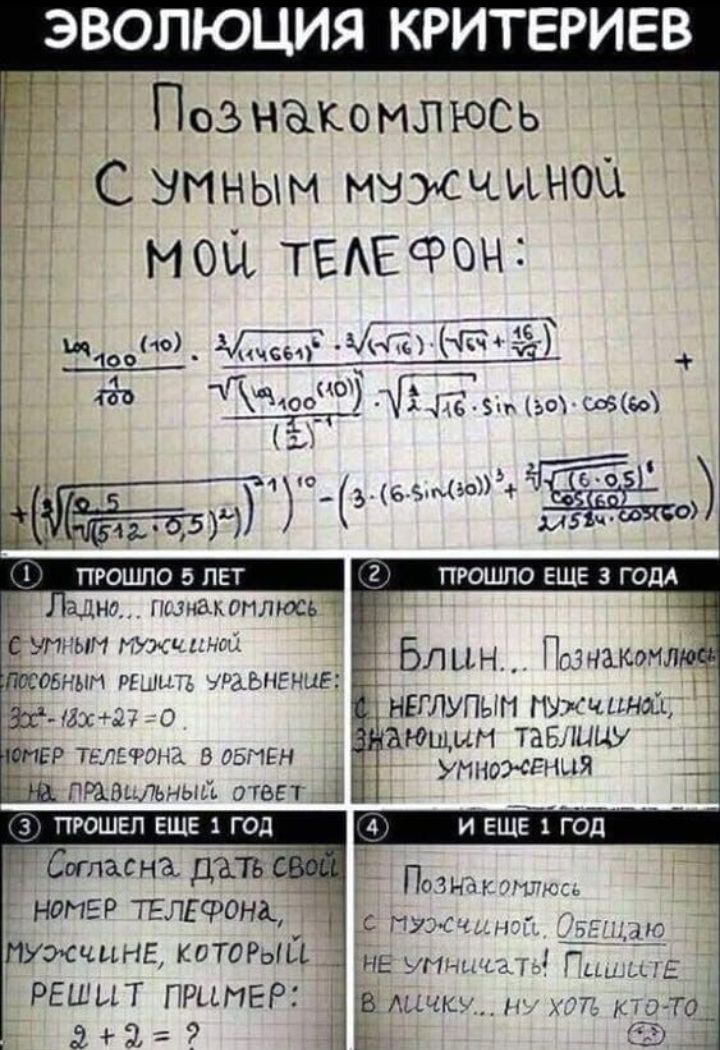 ЭВОЛЮЦИЯ КРИТЕРИЕВ
Познакомлюсь
с умным мужчиной
мой телефон:
log₁₀₀(10) / (1/100) · ∛(14661)⁶ · ∛((√16)·(√64 + 16/√7)) / (√(log₁₀₀(10)) / (1/2)⁻¹ · √(1/2 √16 · sin(30) · cos(60))) +
+ (∛(0,5 / √((512·0,5)²))⁻¹)¹⁰ − (3·(6·sin(30))³ + ∛√(6·0,5)⁶ / cos(60) / 21524·cos(60))
1 ПРОШЛО 5 ЛЕТ
Ладно... познакомлюсь
с умным мужчиной
способным решить уравнение:
3x²-18x+27=0.
номер телефона в обмен
на правильный ответ
2 ПРОШЛО ЕЩЕ 3 ГОДА
Блин... Познакомлюсь
с неглупым мужчиной,
знающим таблицу
умножения
3 ПРОШЕЛ ЕЩЕ 1 ГОД
Согласна дать свой
номер телефона,
мужчине, который
решит пример:
2 + 2 = ?
4 И ЕЩЕ 1 ГОД
Познакомлюсь
с мужчиной. Обещаю
не умничать! Пишите
в личку... ну хоть кто-то